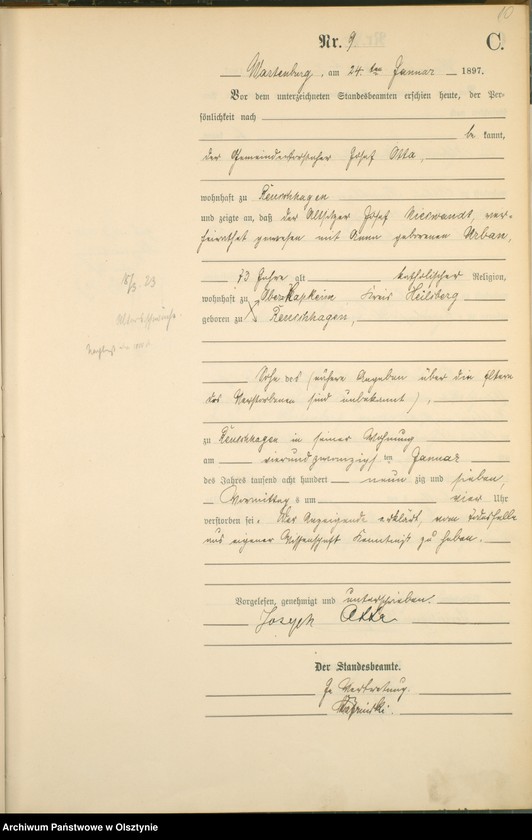 10
Nr. 9
C.
Wartenburg, am 24. ten Januar 1897.
Vor dem unterzeichneten Standesbeamten erschien heute, der Per-
sönlichkeit nach
be kannt,
der Gemeindevorsteher Josef Otta,
wohnhaft zu Reuschhagen
und zeigte an, daß der Altsitzer Josef Nieswandt, ver-
heirathet gewesen mit Anna geborenen Urban,
73 Jahre alt katholischer Religion,
wohnhaft zu Kreis Heilsberg
geboren zu Reuschhagen,
Sohn des (nähere Angaben über die Eltern
des Verstorbenen sind unbekannt),
zu Reuschhagen in seiner Wohnung
am vierundzwanzigsten Januar
des Jahres tausend acht hundert neun zig und sieben,
Vormittags um vier Uhr
verstorben sei. Der Anzeigende erklärt, vom Todesfalle
aus eigener Wissenschaft Kenntniß zu haben.
Vorgelesen, genehmigt und unterschrieben.
Joseph Otta
Der Standesbeamte.
In Vertretung.
Archiwum Państwowe w Olsztynie